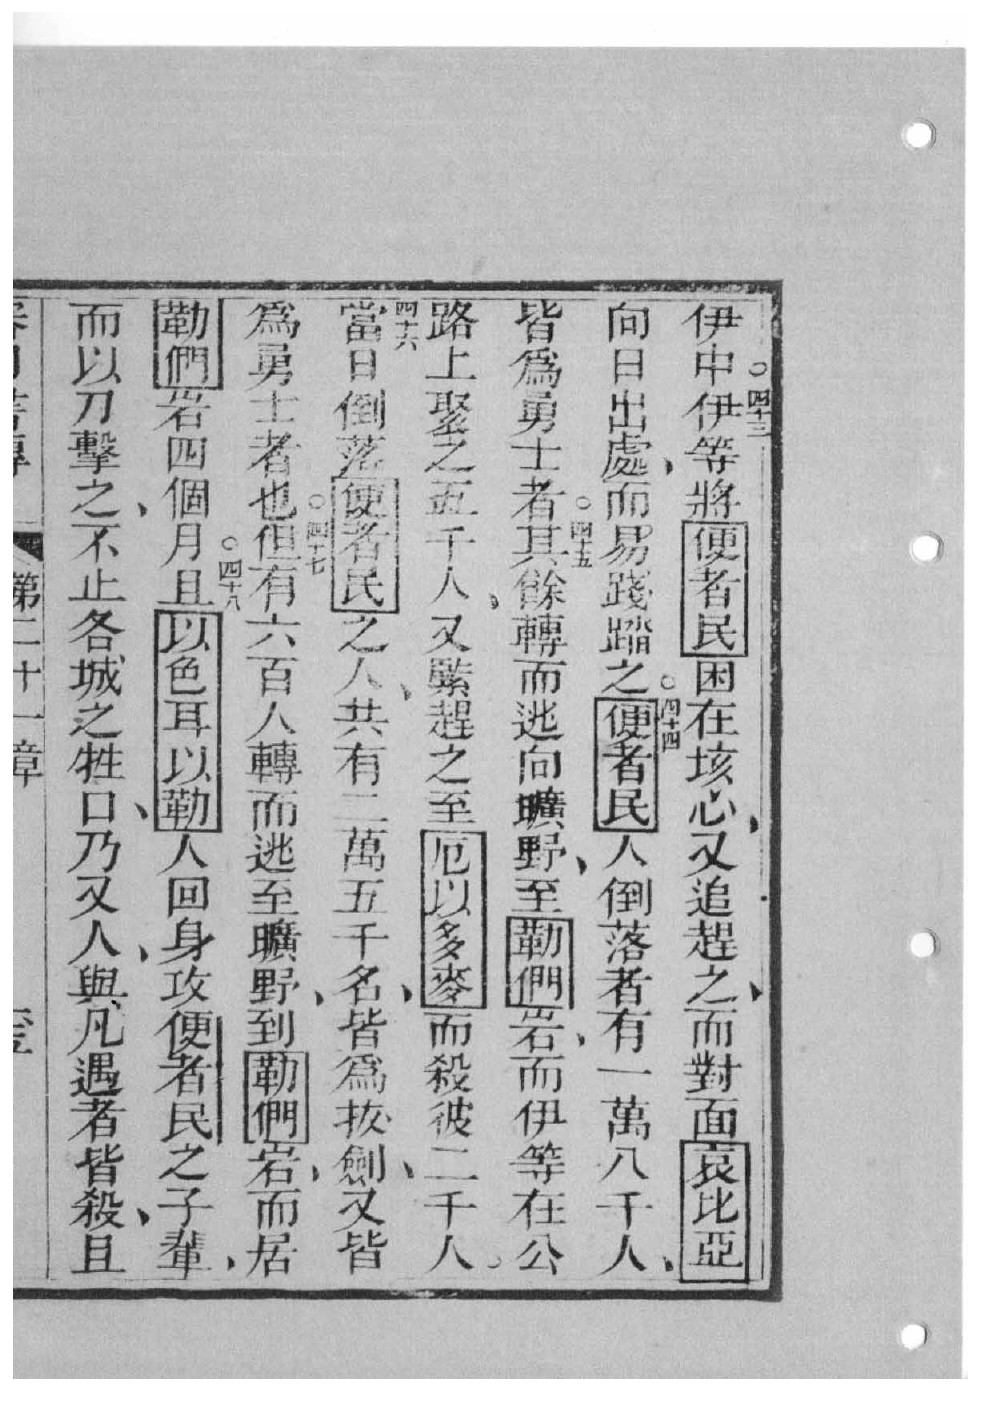 伊中○四十三伊等將便者民困在垓心、又追趕之、而對面哀比亞
向日出處、而易踐踏之○四十四便者民人倒落者有一萬八千人、
皆爲勇士者○四十五其餘轉而逃向曠野、至勒們岩、而伊等在公
路上聚之五千人、又緊趕之至厄以多麥而殺彼二千人。
四十六當日倒落便者民之人、共有二萬五千名、皆爲拔劍、又皆
爲勇士者也○四十七但有六百人轉而逃至曠野、到勒們岩、而居
勒們岩四個月○四十八且以色耳以勒人回身攻便者民之子輩、
而以刀擊之、不止各城之牲口、乃又人、與凡遇者皆殺、且
第二十一章